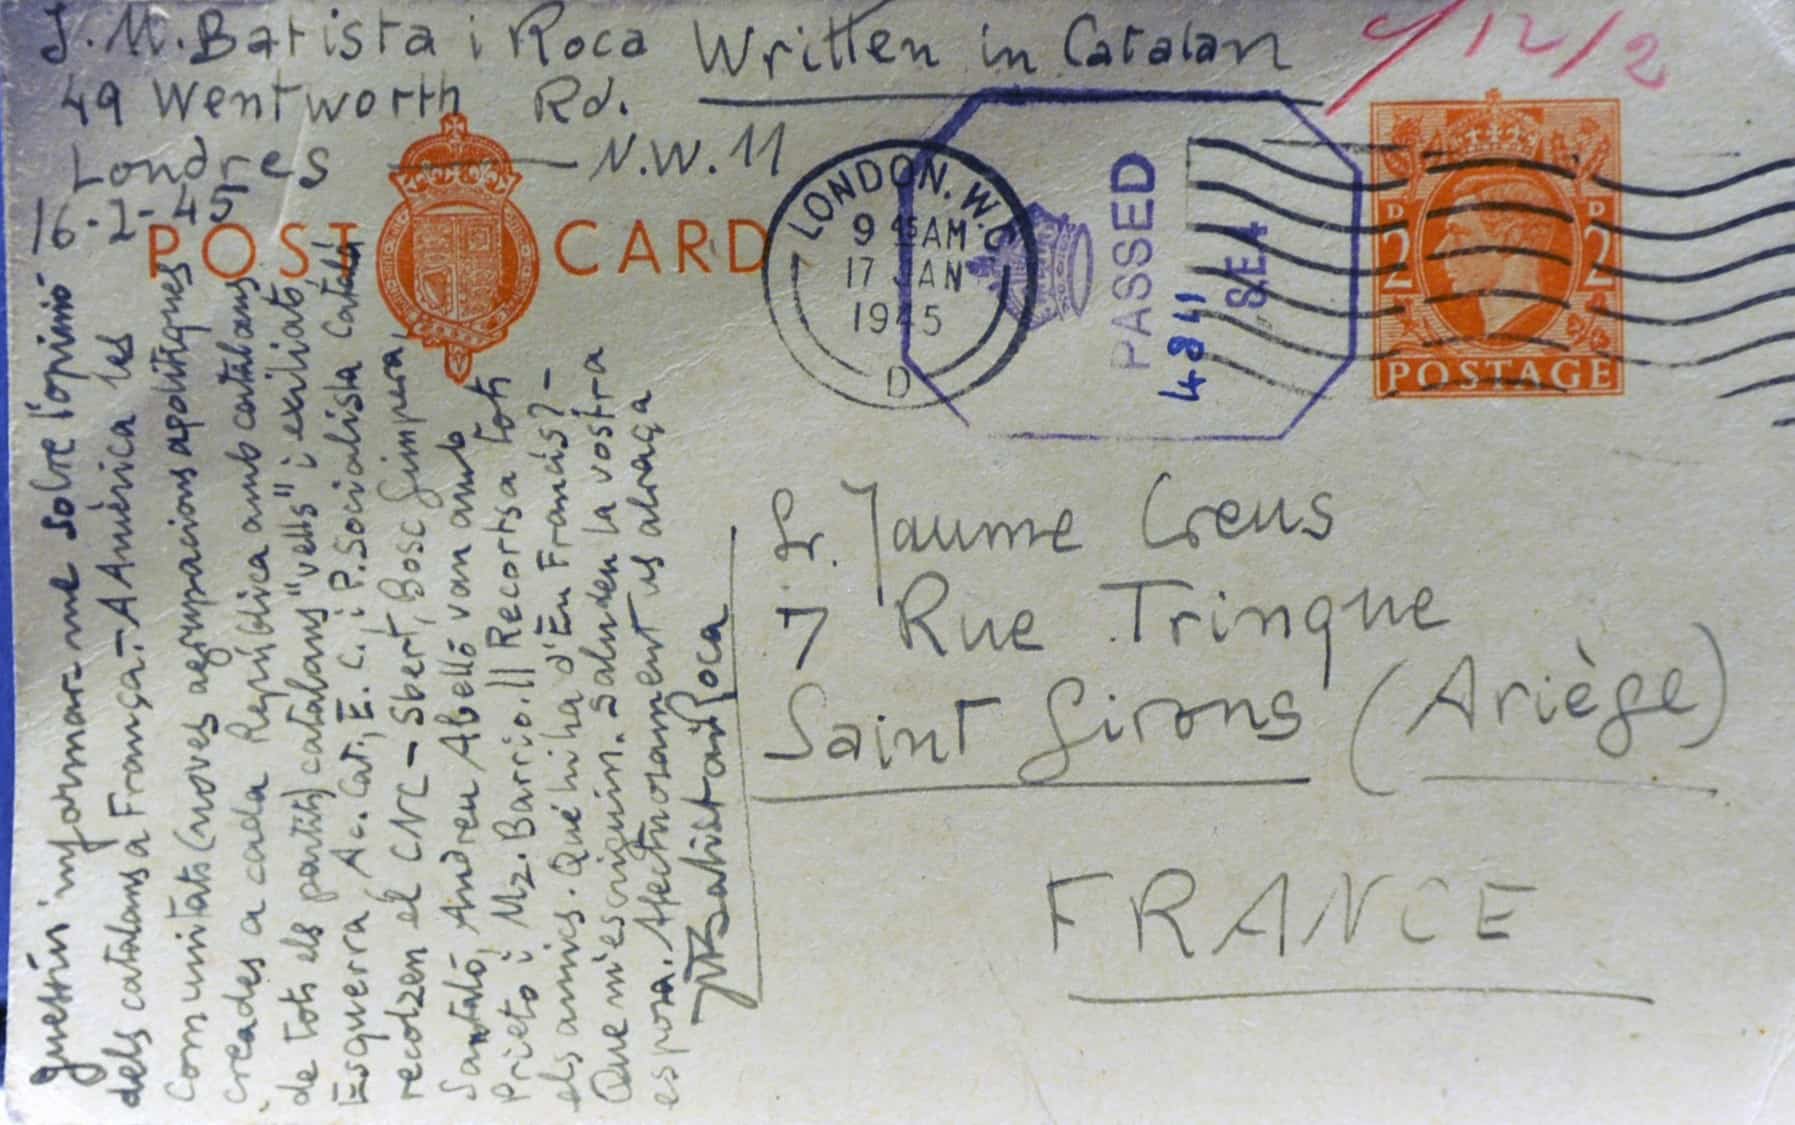 J. M. Batista i Roca Written in Catalan
49 Wentworth Rd.
Londres N.W. 11
16-2-45
4/12/2
POST CARD
LONDON. W.C
9 45 AM
17 JAN
1945
D
PASSED
S.E.4
4811
2D 2D
POSTAGE
Sr. Jaume Creus
7 Rue Trinque
Saint Girons (Ariège)
FRANCE
informar-me sobre l'opinió
dels catalans a França.- A Amèrica les
Comunitats (noves agrupacions apolítiques
creades a cada República amb catalans
de tots els partits) catalans "vells" i exiliats,
Esquerra, Ac. Cat, E. C. i P. Socialista Català
recolzen el CNC - Sbert, Bosc Gimpera,
Santaló, Andreu Abelló van amb
Prieto i Mz. Barrio. || Recorts a tots
els amics. Què hi ha d'En Francis? -
Que m'escriguin. Saluden la vostra
esposa. Afectuosament us abraça
JM Batista i Roca